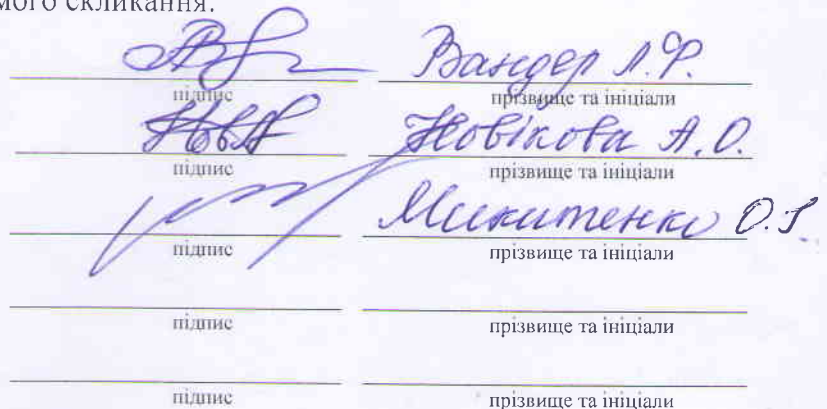 мого скликання.
Вандер Л.Ф.
підпис прізвище та ініціали
Новікова А.О.
підпис прізвище та ініціали
Микитенко О.
підпис прізвище та ініціали
підпис прізвище та ініціали
підпис прізвище та ініціали